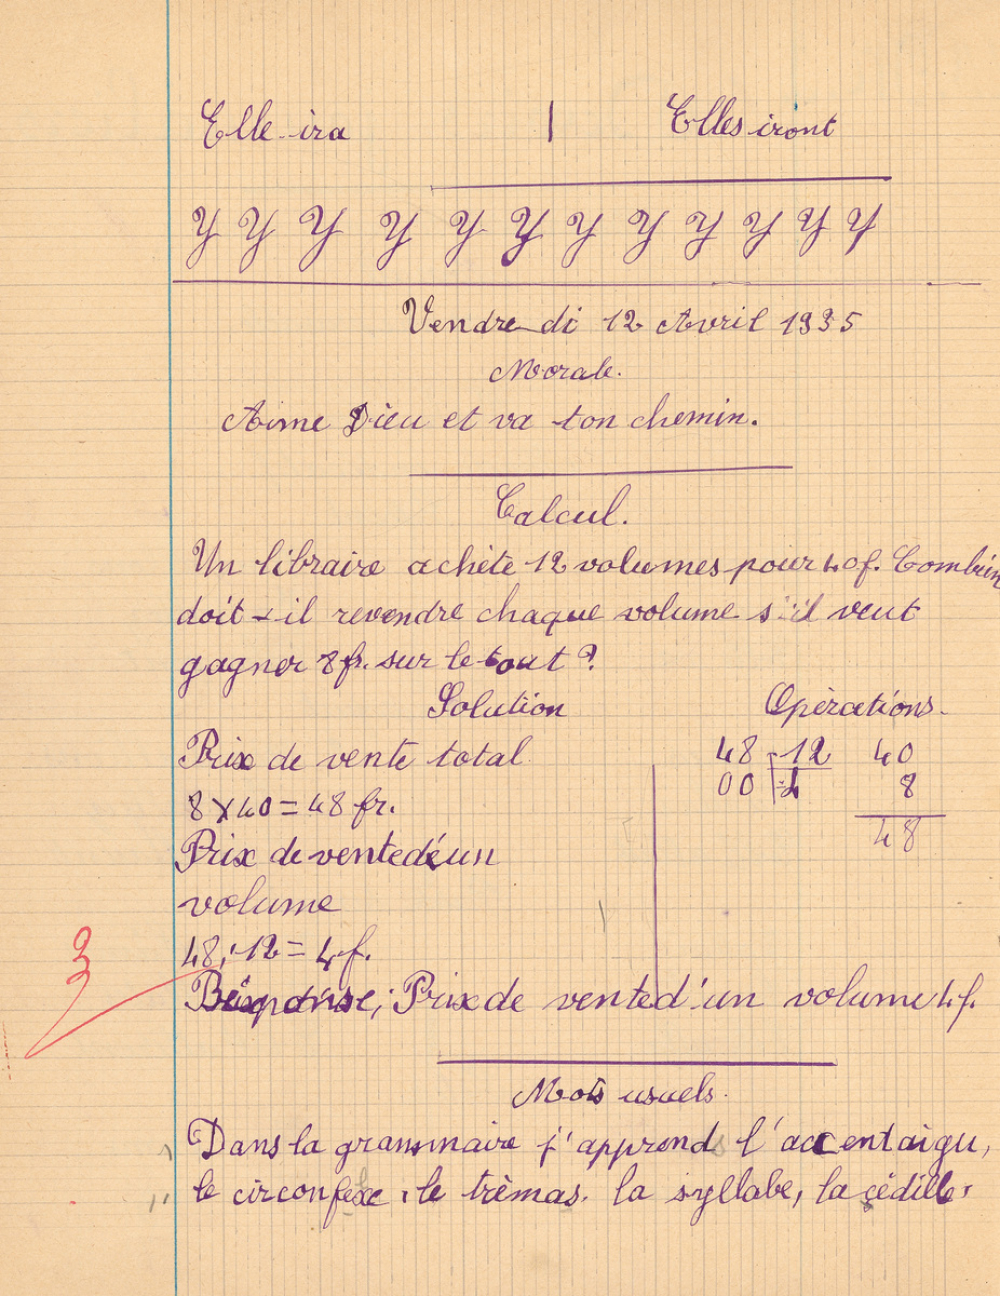 Elle ira | Elles iront
Y Y Y Y Y Y Y Y Y Y Y Y
Vendredi 12 Avril 1935
Morale.
Aime Dieu et va ton chemin.
Calcul.
Un libraire achète 12 volumes pour 40f. Combien
doit-il revendre chaque volume s'il veut
gagner 8fr. sur le tout ?
Solution Opérations.
Prix de vente total 48 12 40
8 x 40 = 48 fr. 00 4 8
48
Prix de vente d'un
volume
48 : 12 = 4 f.
3
Réponse ; Prix de vente d'un volume 4 f.
Mots usuels.
Dans la grammaire j'apprends l'accent aigu,
le circonfexe, le trèmas, la syllabe, la cédille,